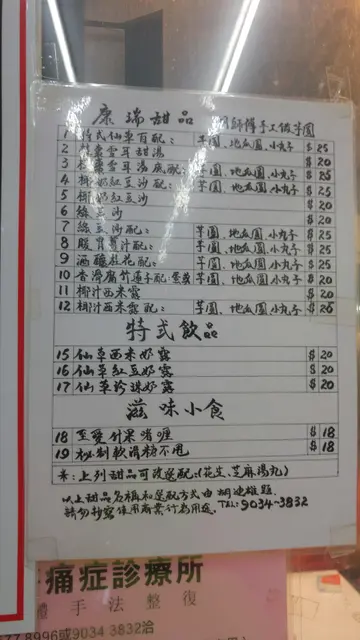 康瑞甜品 師傅手工做芋圓
1 特式仙草百配: 芋圓、地瓜圓、小丸子 $25
2 雪耳甜湯 $20
3 雪耳湯底配: 芋圓、地瓜圓、小丸子 $25
4 椰奶紅豆沙配: 芋圓、地瓜圓、小丸子 $25
5 椰奶紅豆沙 $20
6 綠豆沙 $20
7 綠豆沙配: 芋圓、地瓜圓、小丸子 $25
8 酸薑汁配: 芋圓、地瓜圓、小丸子 $25
9 酒釀桂花配: 芋圓、地瓜圓、小丸子 $25
10 香滑腐竹蓮子配 芋圓、地瓜圓、小丸子 $25
11 椰汁西米露 $20
12 椰汁西米露配: 芋圓、地瓜圓、小丸子 $25
特式飲品
15 仙草西米奶露 $20
16 仙草紅豆奶露 $20
17 仙草珍珠奶露 $20
滋味小食
18 至愛什果啫喱 $18
19 秘制軟滑 $18
※:上列甜品可改選配:(花生、芝麻湯丸)
以上甜品名稱和選配方式由 胡連雄 題.
請勿抄寫使用商業行為用途. TEL: 9034-3832
痛症診療所
體手法整復
77 8996或9034 3832洽